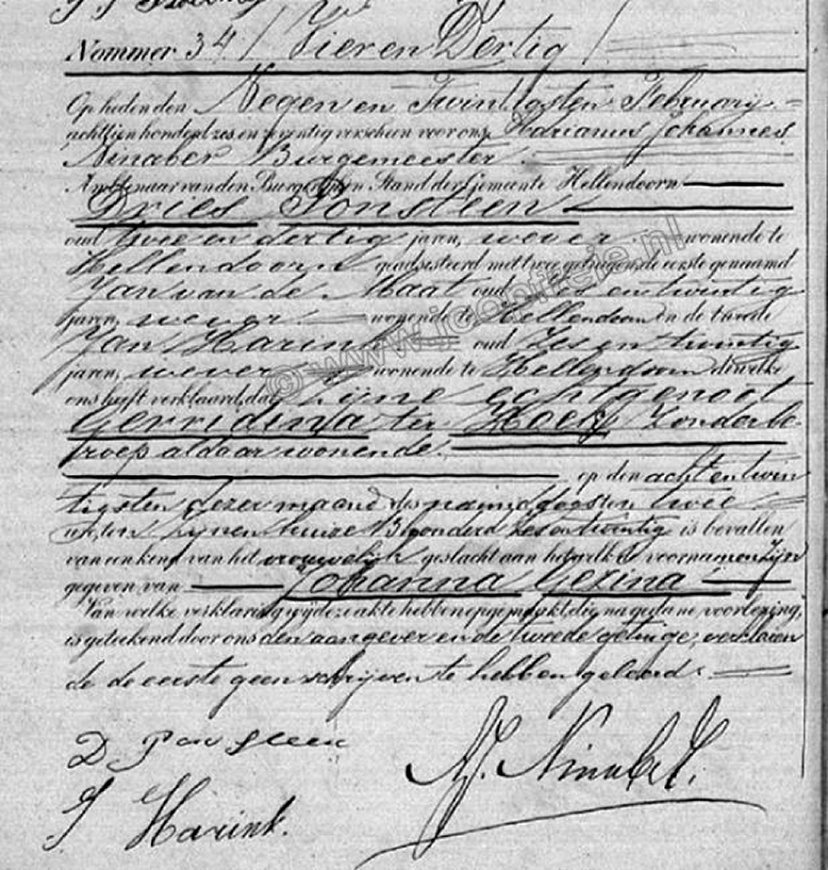 Nommer 34 / Vier en Dertig /
Op heden den Negen en Twintigsten February
achttien honderd zes en zeventig verscheen voor ons, Adrianus Johannes
Ninaber Burgemeester
Ambtenaar van den Burgerlijken Stand der Gemeente Hellendoorn
Dries Ponsteen
oud twee en dertig jaren, wever wonende te
Hellendoorn geadsisteerd met twee getuigen, de eerste genaamd
Jan van de Maat oud en twintig
jaren, wever wonende te Hellendoorn en de tweede
Jan Harink oud Zes en twintig
jaren, wever wonende te Hellendoorn dewelke
ons heeft verklaard, dat Zijne echtgenoot
Gerridina ter Hoek Zonder be
roep aldaar wonende
op den acht en twin
tigsten dezer maand des namiddags ten twee
ure, ten Zijnen huize B honderd zes en twintig is bevallen
van een kind van het vrouwelijk geslacht aan hetwelk de voornamen zijn
gegeven van Johanna Gezina
Van welke verklaring wij deze akte hebben opgemaakt, die, na gedane voorlezing,
is geteekend door ons den aangever en de tweede getuige, verklaren
de de eerste geen schrijven te hebben geleerd.
D Ponsteen
A.J. Ninaber.
J Harink.
© www.jcoonfetje.nl